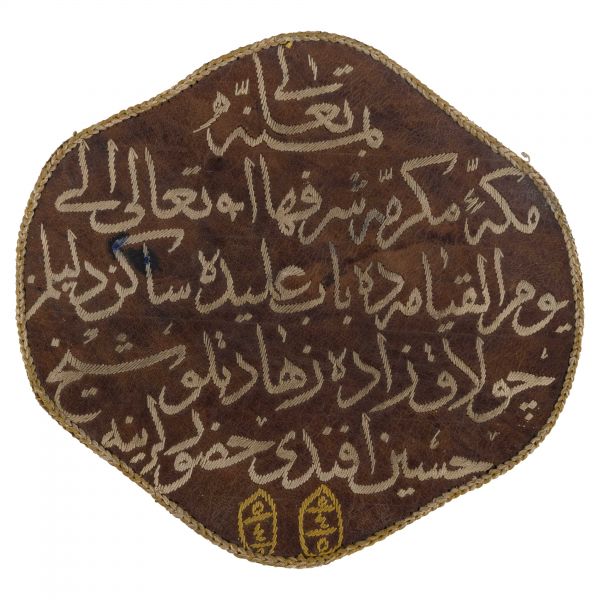 بمنه تعالى
مكة مكرمه شرفها الله تعالى الى
يوم القيامه ده باب عليده ساكن دليلمز
چولاق زاده زهادتلو شيخ
حسين افندى حضورلرينه